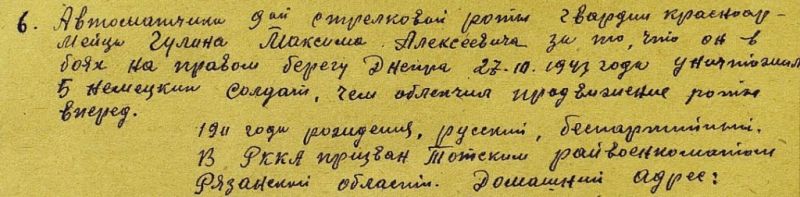 6. Автоматчика 9ой стрелковой роты гвардии красноар-
мейца Гулина Максима Алексеевича за то, что он в
боях на правом берегу Днепра 27.10.1943 года уничтожил
5 немецких солдат, чем облегчил продвижение роты
вперед.
1911 года рождения, русский, беспартийный.
В РККА призван Тотским райвоенкоматом
Рязанской области. Домашний адрес: